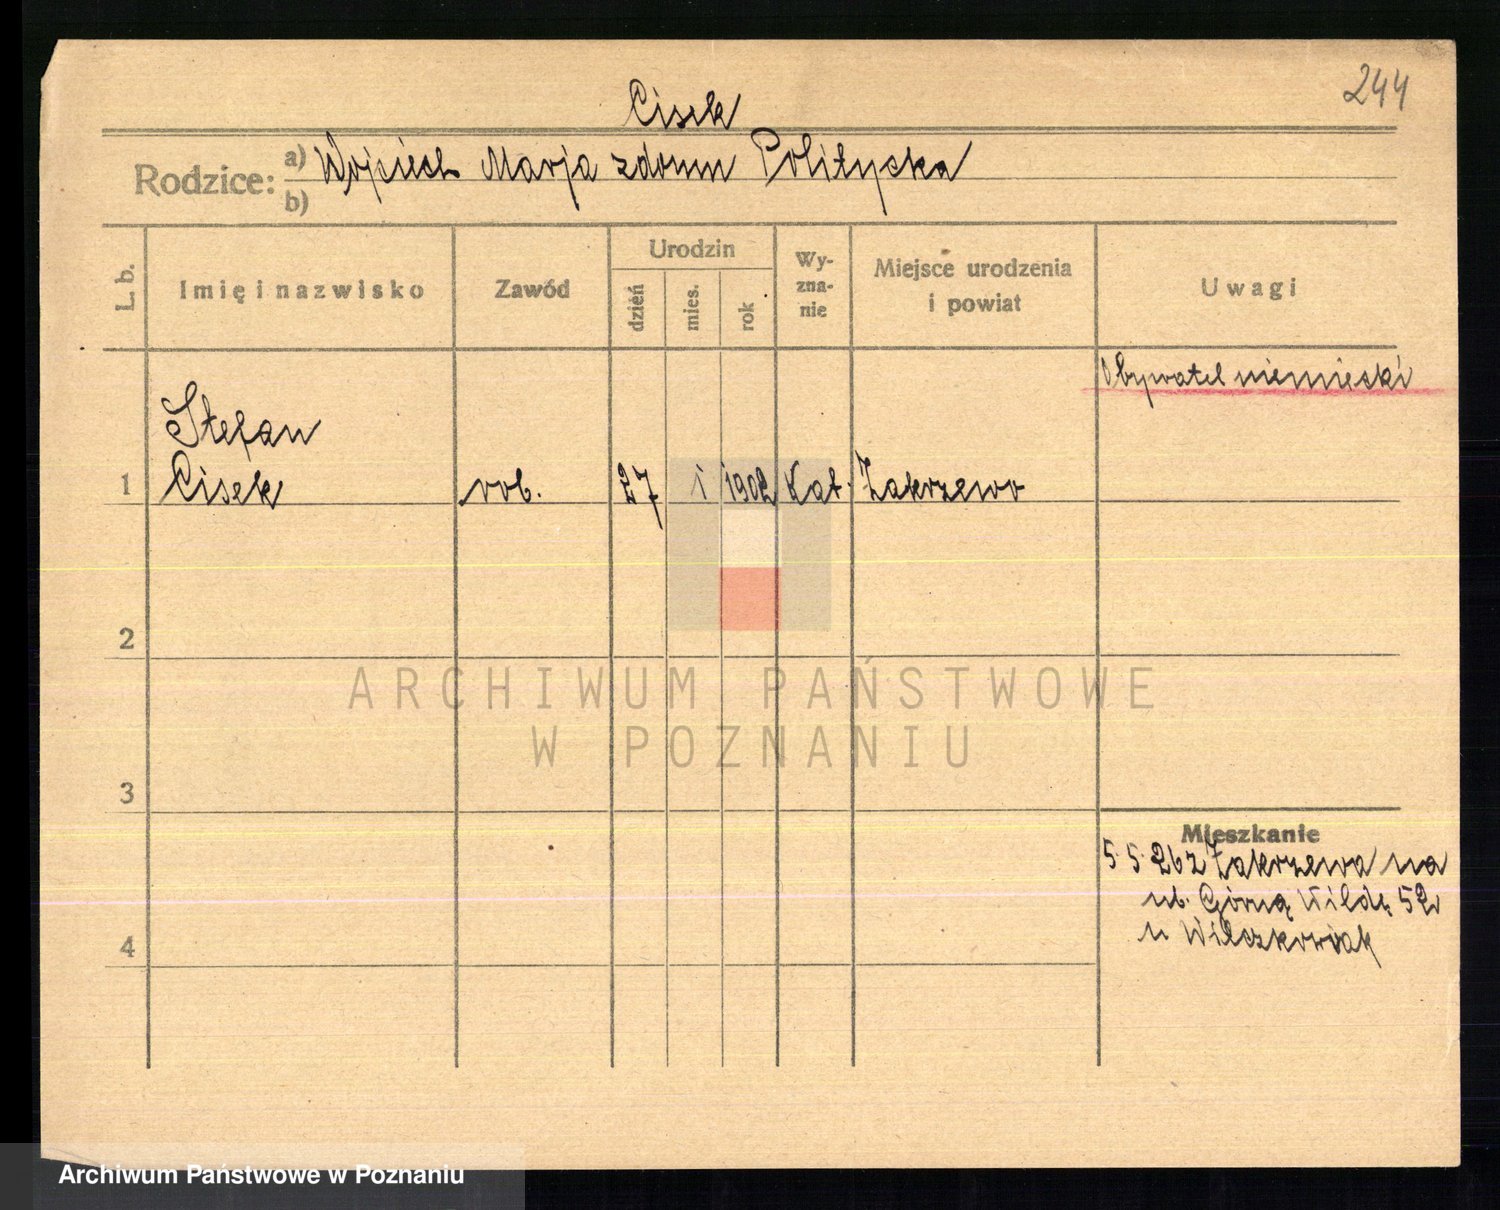 244
Cisek
Rodzice: a) Wojciech Marja z domu Politycka
b)
L. b. Imię i nazwisko Zawód Urodzin dzień mies. rok Wy-zna-nie Miejsce urodzenia i powiat Uwagi
Obywatel niemiecki
Stefan
1 Cisek rob. 27 1 1902 Kat. Zakrzewo
2
ARCHIWUM PAŃSTWOWE
W POZNANIU
3
Mieszkanie
5.5.26 z Zakrzewa na
ul. Górną Wildę 52
u Wilczkowiak
4
Archiwum Państwowe w Poznaniu